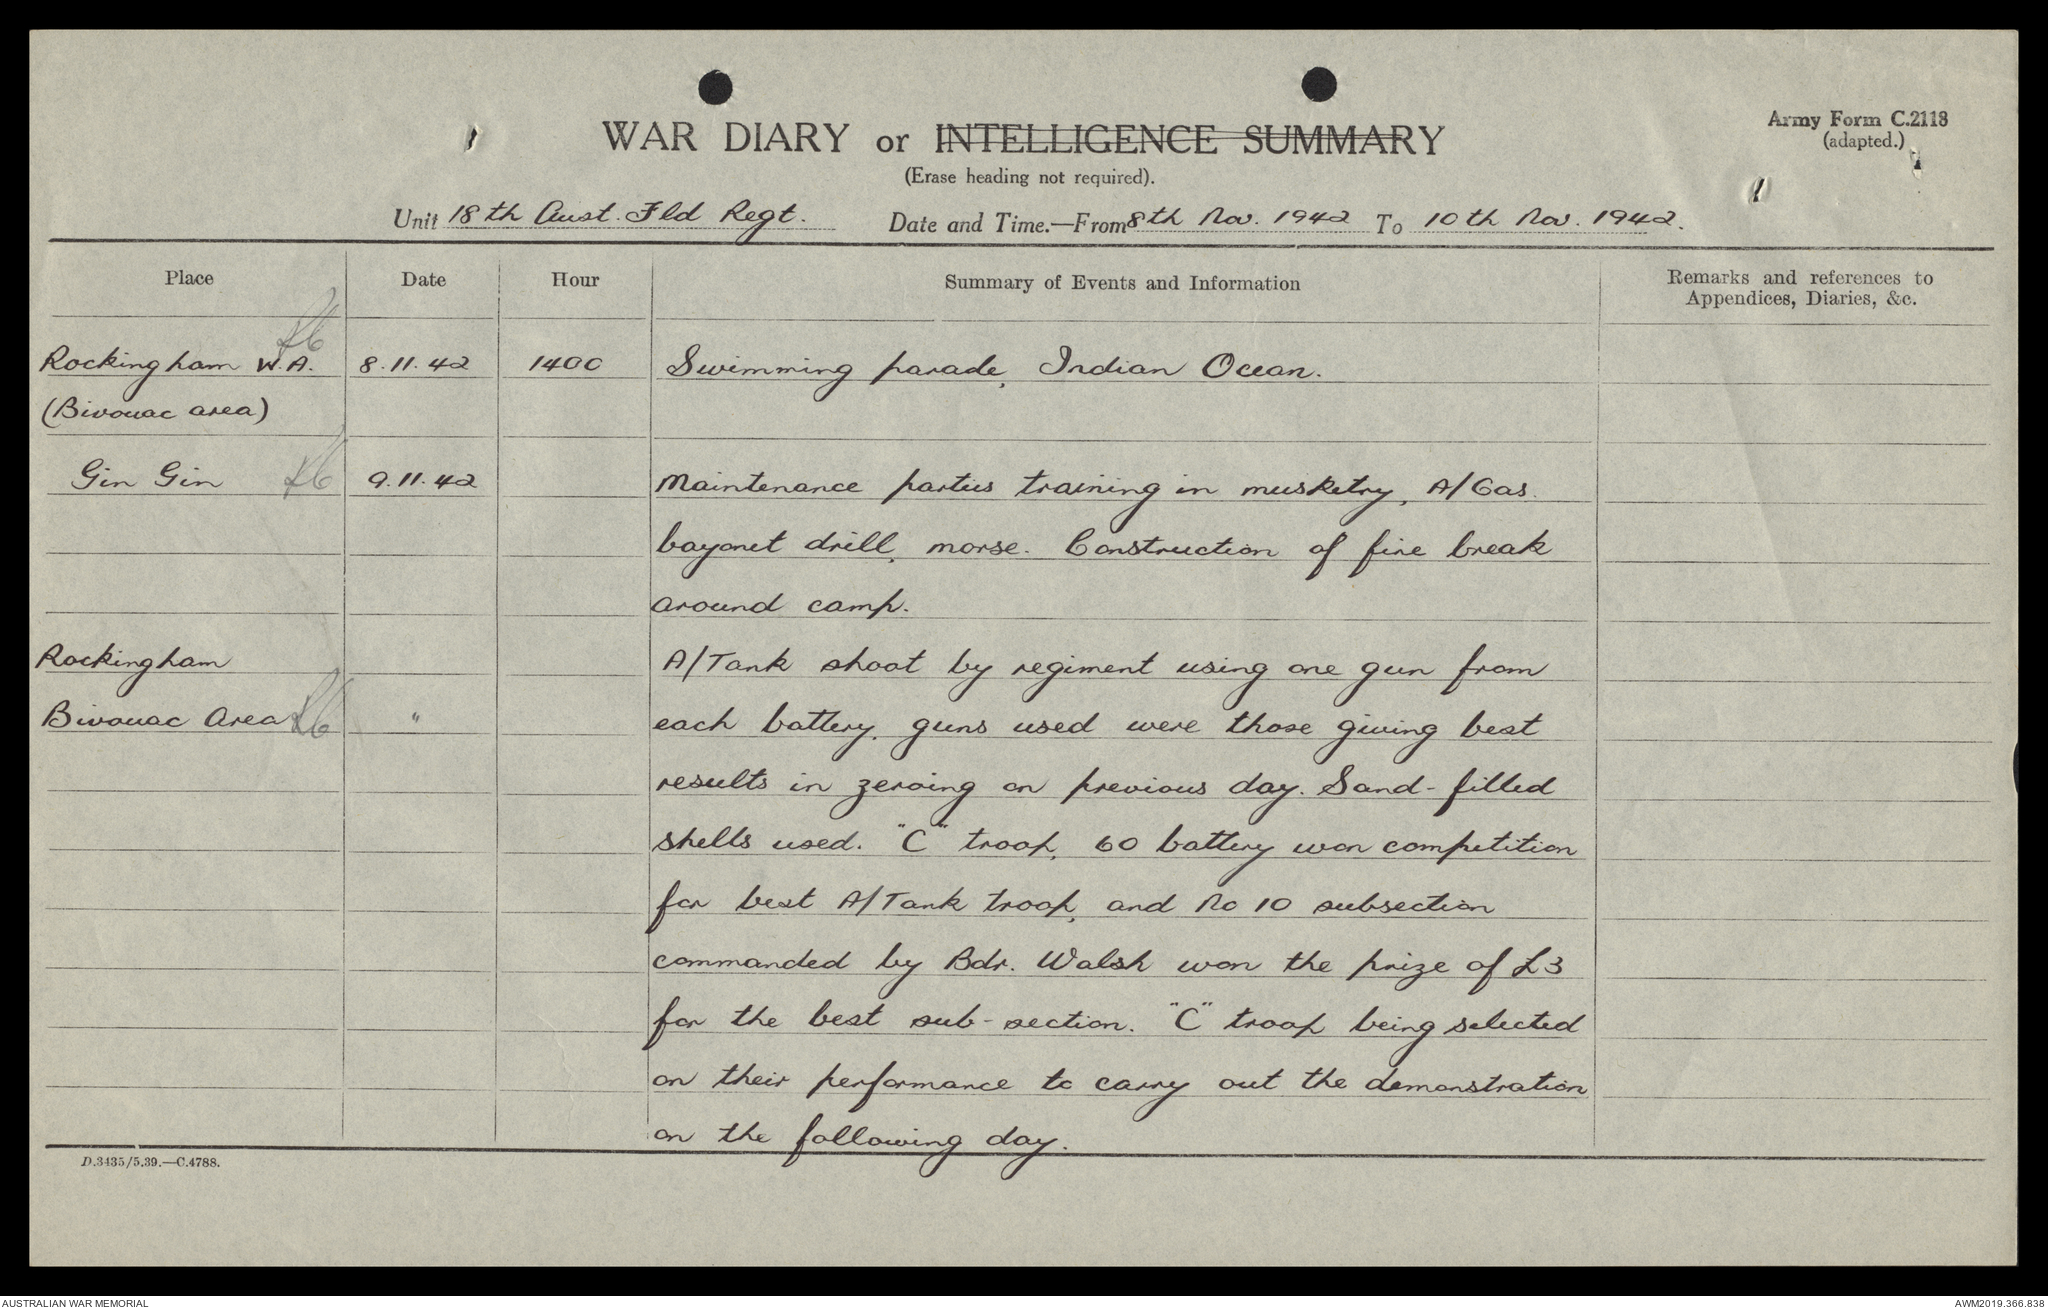 WAR DIARY or INTELLIGENCE SUMMARY
Army Form C.2118
(adapted.)
(Erase heading not required).
Unit 18th Aust. Fld Regt. Date and Time.—From 8th Nov. 1942 To 10th Nov. 1942.
Place Date Hour Summary of Events and Information Remarks and references to
Appendices, Diaries, &c.
Rockingham W.A. 8.11.42 1400 Swimming parade, Indian Ocean.
(Bivouac area)
Gin Gin 9.11.42 Maintenance parties training in musketry, A/Gas.
bayonet drill, morse. Construction of fire break
around camp.
Rockingham A/Tank shoot by regiment using one gun from
Bivouac Area " each battery, guns used were those giving best
results in zeroing on previous day. Sand-filled
shells used. "C" troop, 60 battery won competition
for best A/Tank troop, and No 10 subsection
commanded by Bdr. Walsh won the prize of £3
for the best sub-section. "C" troop being selected
on their performance to carry out the demonstration
on the following day.
D.3435/5.39.—C.4788.
AUSTRALIAN WAR MEMORIAL AWM2019.366.838